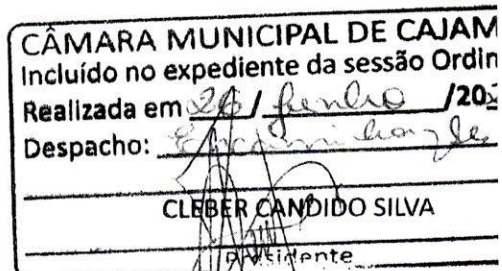 CÂMARA MUNICIPAL DE CAJAM
Incluído no expediente da sessão Ordin
Realizada em 26 / junho /202
Despacho:
CLEBER CANDIDO SILVA
Presidente